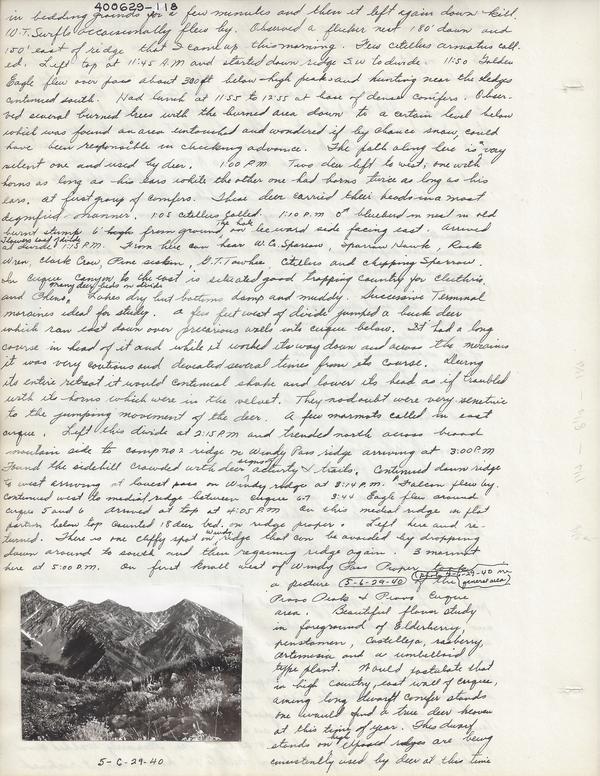 400629-118
in bedding grounds for a few minutes and then it left again down hill.
W.T. Swifts occasionally flies by. Observed a flicker nest 180' down and
150' east of ridge that I came up this morning. Few citellus armatus call-
ed. Left top at 11:45 A.M and started down ridge S.W to divide. 11:50 Golden
Eagle flew over pass about 300 ft below high peak and hunting near the ledges
continued south. Had lunch at 11:55 to 12:55 at base of dense conifers. Obser-
ved several burned trees with the burned area down to a certain level below
which was found an area untouched and wondered if by chance snow, could
have been responsible in checking advance. The path along here is a very
silent one and used by deer. 1:00 P.M. Two deer left to west, one with
horns as long as his ears while the other one had horns twice as long as his
ears, at first group of conifers. These deer carried their heads in a most
dignified manner. 1:05 citellus called. 1:10 P.M 0" bluebird in nest in old
burnt stump 6' high from ground, The hole on lee ward side facing east. Arrived
at divide 1:15 P.M. From here can hear W.C. Sparrow, Sparrow Hawk, Rock
Wren, Clark Crow, Pine siskin, G.T. Towhee, Citellus and chipping Sparrow.
many deer beds on divide
In cirque Canyon to the east is situated good trapping country for
and Phen. Lakes dry but bottoms damp and muddy. Successive Terminal
moraines ideal for study. A few feet west of divide jumped a buck deer
which ran east down over precarious walls into cirque below. It had a long
course in head of it and while it worked its way down and across the moraines
it was very cautious and deviated several times from its course. During
its entire retreat it would continual shake and lower its head as if troubled
with its horns which were in the velvet. They no doubt were very sensitive
to the jumping movement of the deer. A few marmots called in east
cirque. Left this divide at 2:15 P.M and trended north across broad
mountain side to camp no 2 ridge on Windy Pass ridge arriving at 3:00 P.M
Found the sidehill crowded with deer activity & trails. Continued down ridge
to west arriving at lowest pass on Windy ridge at 3:14 P.M. Falcon flew by.
continued west to medial ridge between cirque 6-7 3:44 Eagle flew around
cirque 5 and 6 arrived at top at 4:05 P.M On this medial ridge in flat
portion below top counted 18 deer bed. on ridge proper. Left here and re-
turned. There is one cliffy spot on Windy ridge that can be avoided by dropping
down around to south and then regaining ridge again. 3 marmot
here at 5:00 P.M. On first knoll west of Windy Pass Proper
a picture (5-6-29-40) of the general area
Provo Peak & Provo Cirque
area. Beautiful flower study
in foreground of Elderberry,
penstamen, Castelleja, rasberry,
artemesia and a umbelloid
type plant. Would postulate that
in high country, east wall of cirques,
among long dwarf conifer stands
one would find a true deer heaven
at this time of year. These dwarf
stands on high exposed ridges are being
consistenly used by deer at this time
5-6-29-40